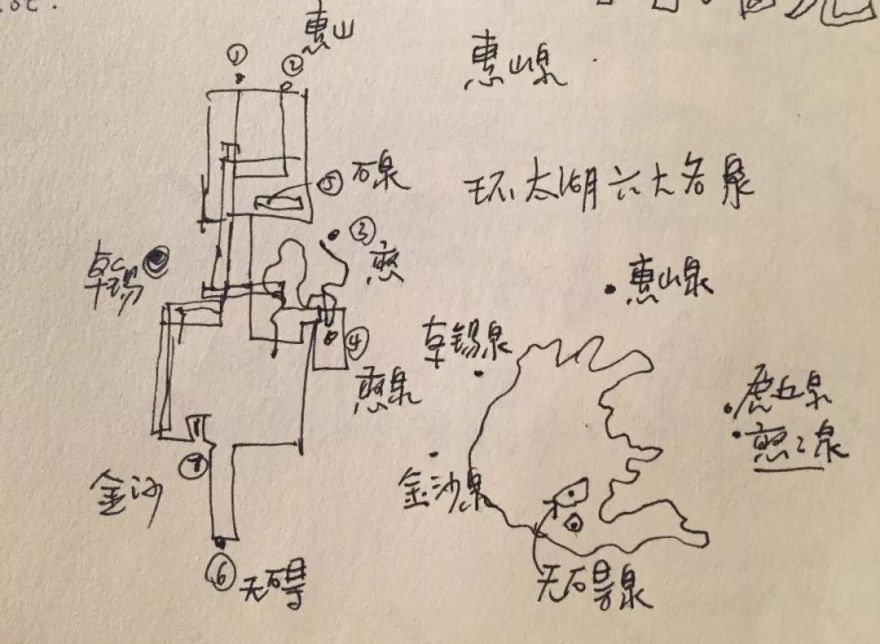 ① ② 惠山
惠山泉
环太湖六大名泉
⑤ 石泉
③ 憨
卓锡
④
憨泉
金沙
⑦
⑥ 无碍
惠山泉
卓锡泉
虎丘泉
憨々泉
金沙泉
无碍泉